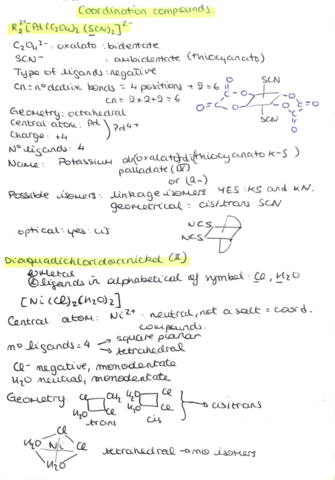 Coordination compounds
K₂²⁺[Pd(C₂O₄)₂(SCN)₂]²⁻
C₂O₄²⁻: oxalato: bidentate
SCN⁻ : ambidentate (thiocyanato)
Type of ligands: negative
cn: nº dative bonds = 4 positions + 2 = 6
cn = 2×2+2 = 6
Geometry: octahedral
Central atom: Pd
Charge: +4
Pd⁴⁺
Nº ligands: 4
Name: Potassium di(oxalato)di(thiocyanato κ-S)
palladate (IV)
or (2-)
Possible isomers: linkage isomers YES: κS and κN.
geometrical: cis/trans SCN
optical: yes: cis
NCS
NCS
SCN
SCN
Diaquadichloridonickel (II)
① metal
② ligands in alphabetical of symbol: Cl, H₂O
[Ni(Cl)₂(H₂O)₂]
Central atom: Ni²⁺: neutral, not a salt = coord.
compounds.
nº ligands = 4 → square planar
→ tetrahedral
Cl⁻ negative, monodentate
H₂O neutral, monodentate
Geometry: Cl OH₂ H₂O Cl
H₂O Cl H₂O Cl → cis/trans
trans cis
Cl
H₂O Ni Cl
H₂O
tetrahedral → no isomers